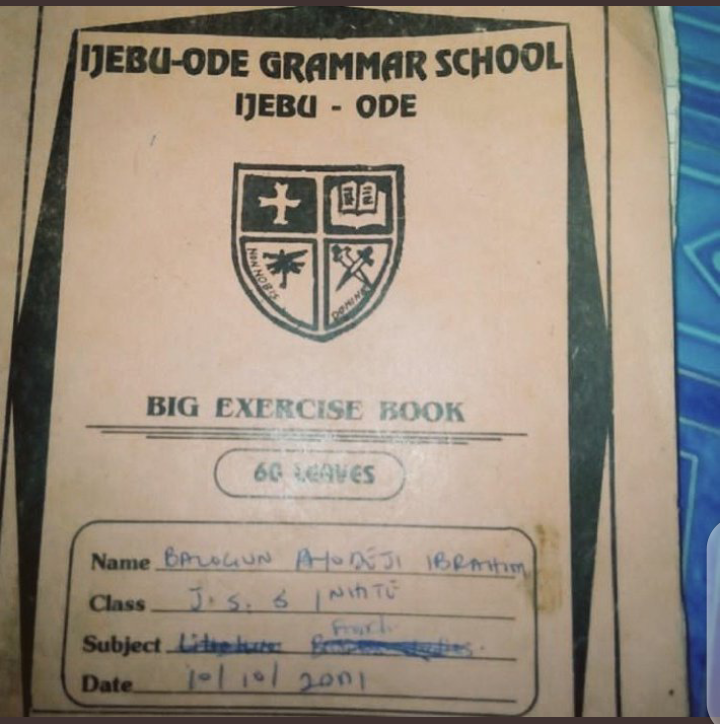 IJEBU-ODE GRAMMAR SCHOOL
IJEBU - ODE
NON NOBIS
DOMINE
BIG EXERCISE BOOK
60 LEAVES
Name BALOGUN AYODEJI IBRAHIM
Class J. S. S 1 WHITE
Subject Literature
Date 10/10/2001